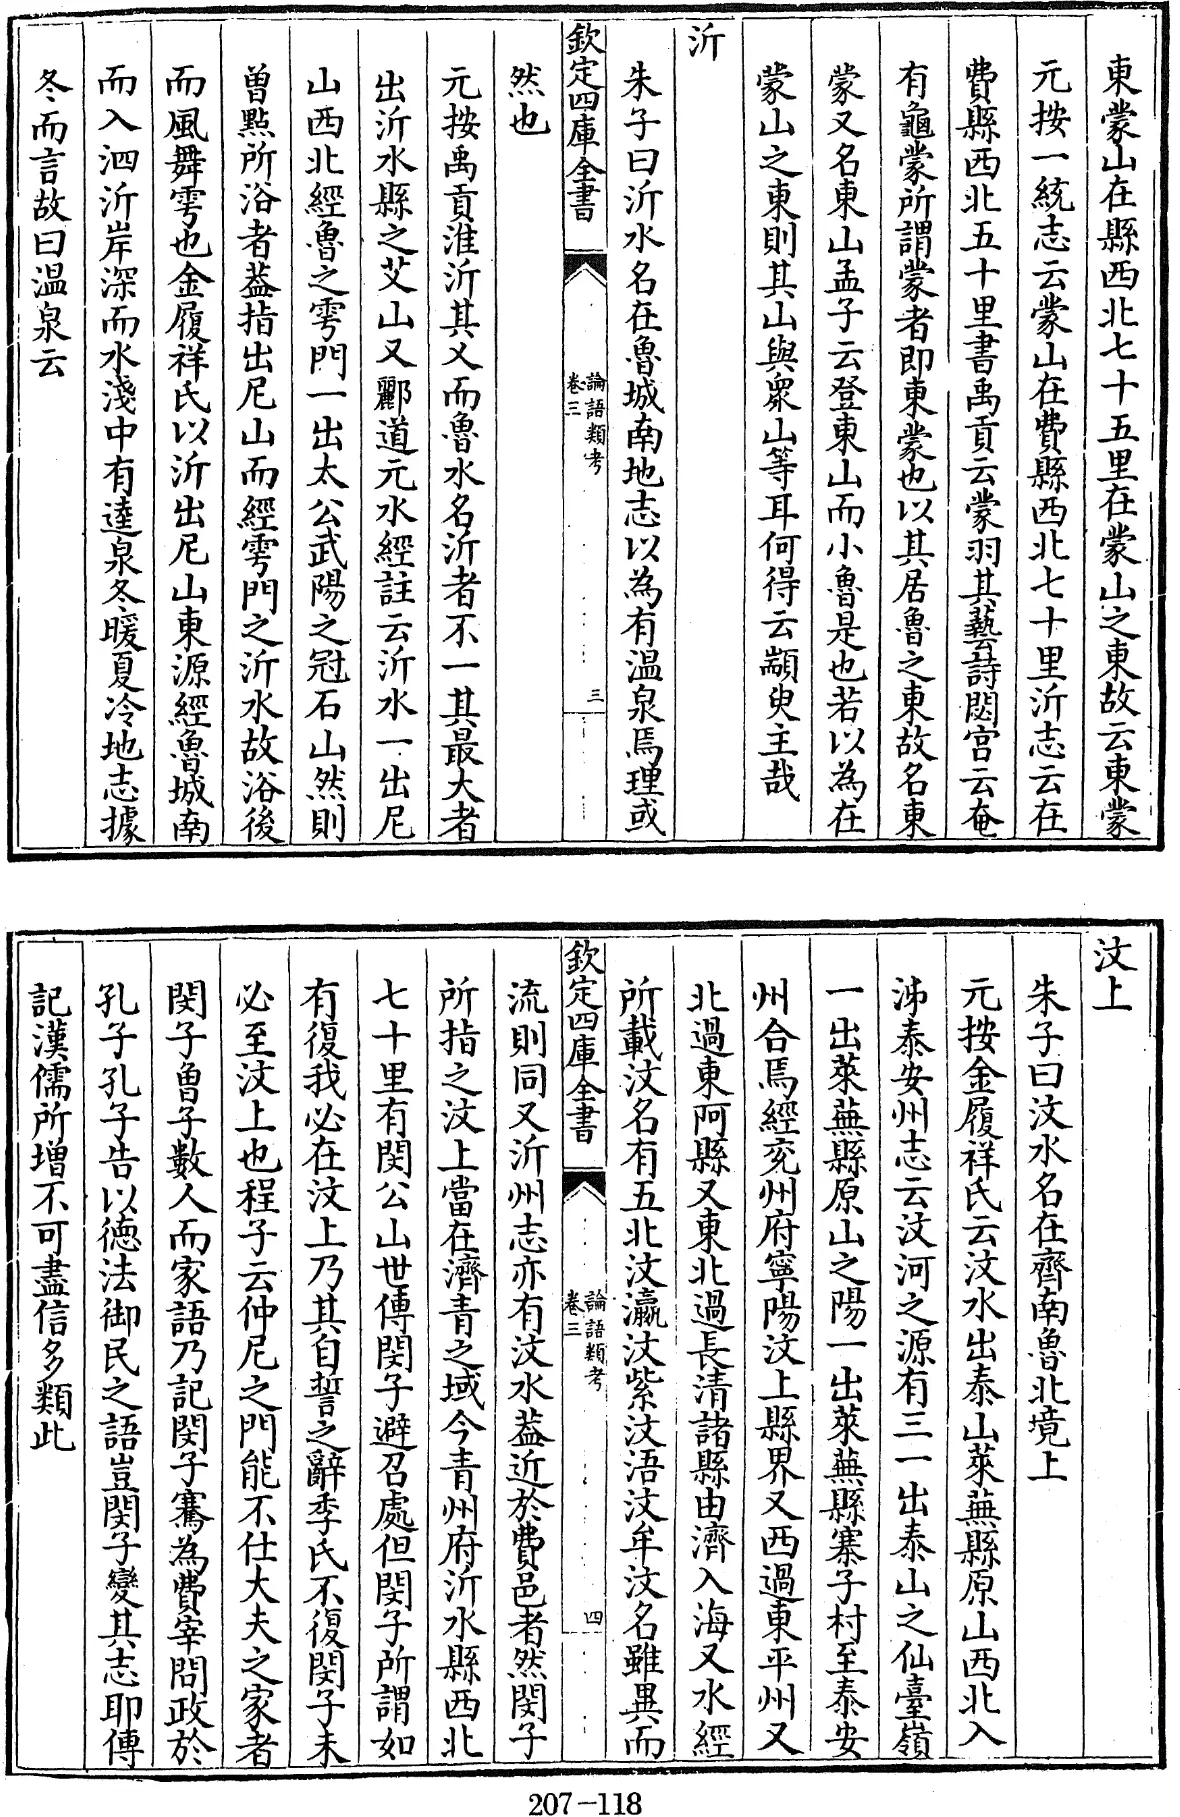 東蒙山在縣西北七十五里在蒙山之東故云東蒙
元按一統志云蒙山在費縣西北七十里沂志云在
費縣西北五十里書禹貢云蒙羽其藝詩閟宮云奄
有龜蒙所謂蒙者即東蒙也以其居魯之東故名東
蒙又名東山孟子云登東山而小魯是也若以為在
蒙山之東則其山與衆山等耳何得云顓臾主哉
沂
朱子曰沂水名在魯城南地志以為有温泉焉理或
欽定四庫全書
論語類考
卷三
三
然也
元按禹貢淮沂其乂而魯水名沂者不一其最大者
出沂水縣之艾山又酈道元水經註云沂水一出尼
山西北經魯之雩門一出太公武陽之冠石山然則
曾點所浴者葢指出尼山而經雩門之沂水故浴後
而風舞雩也金履祥氏以沂出尼山東源經魯城南
而入泗沂岸深而水淺中有逵泉冬暖夏冷地志據
冬而言故曰温泉云
汶上
朱子曰汶水名在齊南魯北境上
元按金履祥氏云汶水出泰山萊蕪縣原山西北入
泲泰安州志云汶河之源有三一出泰山之仙臺嶺
一出萊蕪縣原山之陽一出萊蕪縣寨子村至泰安
州合焉經兖州府寧陽汶上縣界又西過東平州又
北過東阿縣又東北過長清諸縣由濟入海又水經
所載汶名有五北汶瀛汶紫汶浯汶牟汶名雖異而
欽定四庫全書
論語類考
卷三
四
流則同又沂州志亦有汶水葢近於費邑者然閔子
所指之汶上當在濟青之域今青州府沂水縣西北
七十里有閔公山世傳閔子避召處但閔子所謂如
有復我必在汶上乃其自誓之辭季氏不復閔子未
必至汶上也程子云仲尼之門能不仕大夫之家者
閔子曾子數人而家語乃記閔子騫為費宰問政於
孔子孔子告以德法御民之語豈閔子變其志耶傳
記漢儒所增不可盡信多類此
207-118